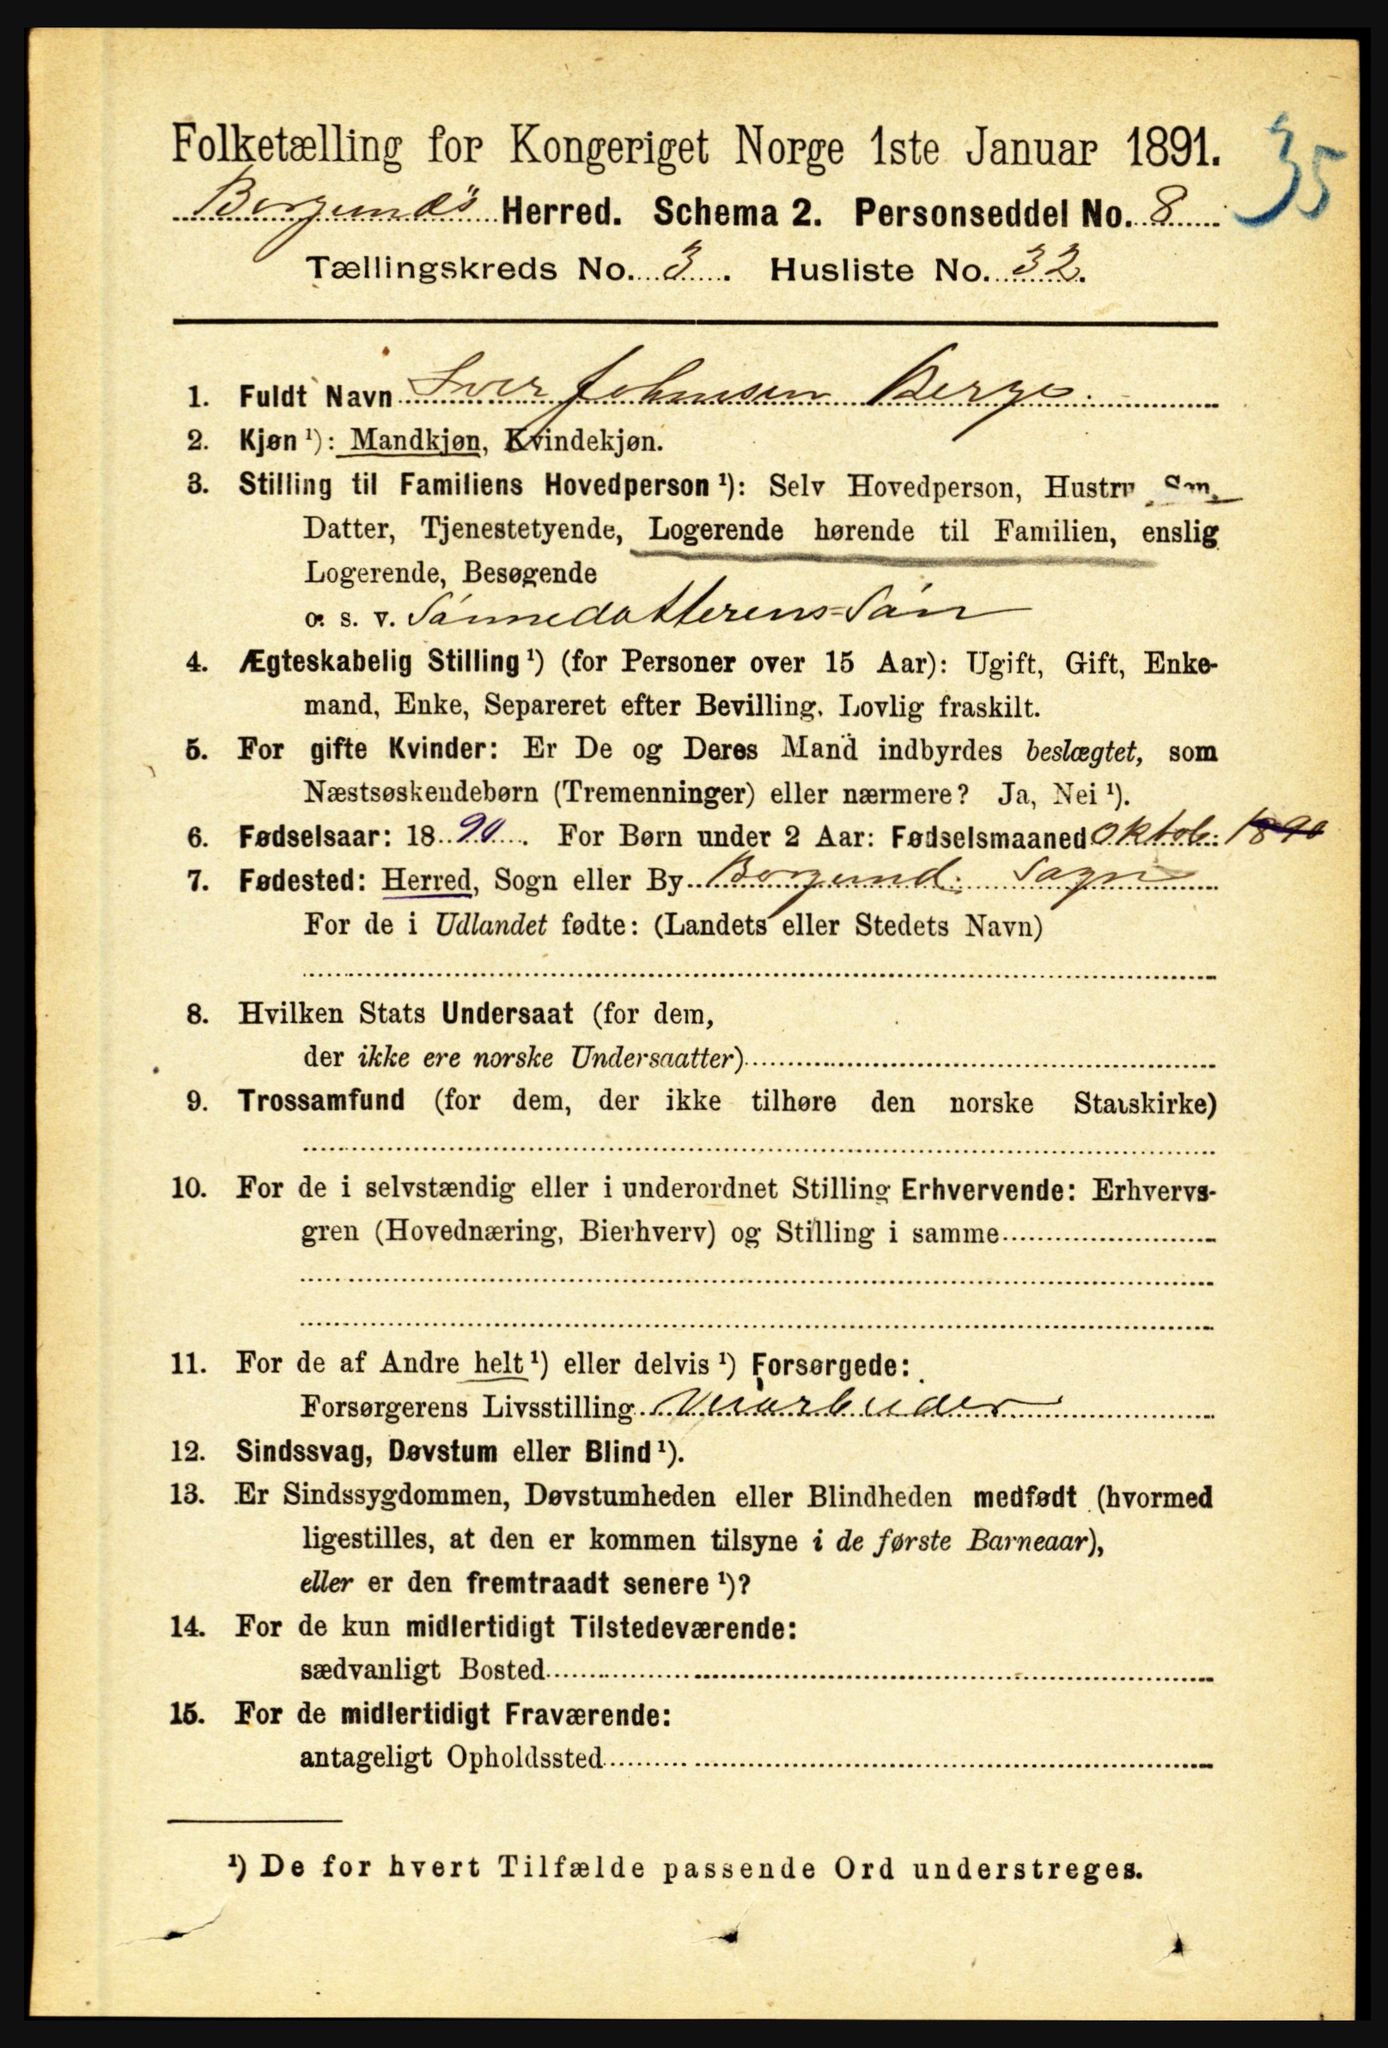 Folketælling for Kongeriget Norge 1ste Januar 1891.
35
Borgund's Herred. Schema 2. Personseddel No. 8
Tællingskreds No. 3. Husliste No. 32.
1. Fuldt Navn Iver Johnsen Berge
2. Kjøn ¹): Mandkjøn, Kvindekjøn.
3. Stilling til Familiens Hovedperson ¹): Selv Hovedperson, Hustru Søn,
Datter, Tjenestetyende, Logerende hørende til Familien, enslig
Logerende, Besøgende
o. s. v. Sønnedatterens Søn
4. Ægteskabelig Stilling ¹) (for Personer over 15 Aar): Ugift, Gift, Enke-
mand, Enke, Separeret efter Bevilling, Lovlig fraskilt.
5. For gifte Kvinder: Er De og Deres Mand indbyrdes beslægtet, som
Næstsøskendebørn (Tremenninger) eller nærmere? Ja, Nei ¹).
6. Fødselsaar: 1890. For Børn under 2 Aar: Fødselsmaaned Oktob: 1890
7. Fødested: Herred, Sogn eller By Borgund: Sogn
For de i Udlandet fødte: (Landets eller Stedets Navn)
8. Hvilken Stats Undersaat (for dem,
der ikke ere norske Undersaatter)
9. Trossamfund (for dem, der ikke tilhøre den norske Statskirke)
10. For de i selvstændig eller i underordnet Stilling Erhvervende: Erhvervs-
gren (Hovednæring, Bierhverv) og Stilling i samme
11. For de af Andre helt ¹) eller delvis ¹) Forsørgede:
Forsørgerens Livsstilling Veiarbeider
12. Sindssvag, Døvstum eller Blind ¹).
13. Er Sindssygdommen, Døvstumheden eller Blindheden medfødt (hvormed
ligestilles, at den er kommen tilsyne i de første Barneaar),
eller er den fremtraadt senere ¹)?
14. For de kun midlertidigt Tilstedeværende:
sædvanligt Bosted
15. For de midlertidigt Fraværende:
antageligt Opholdssted
¹) De for hvert Tilfælde passende Ord understreges.